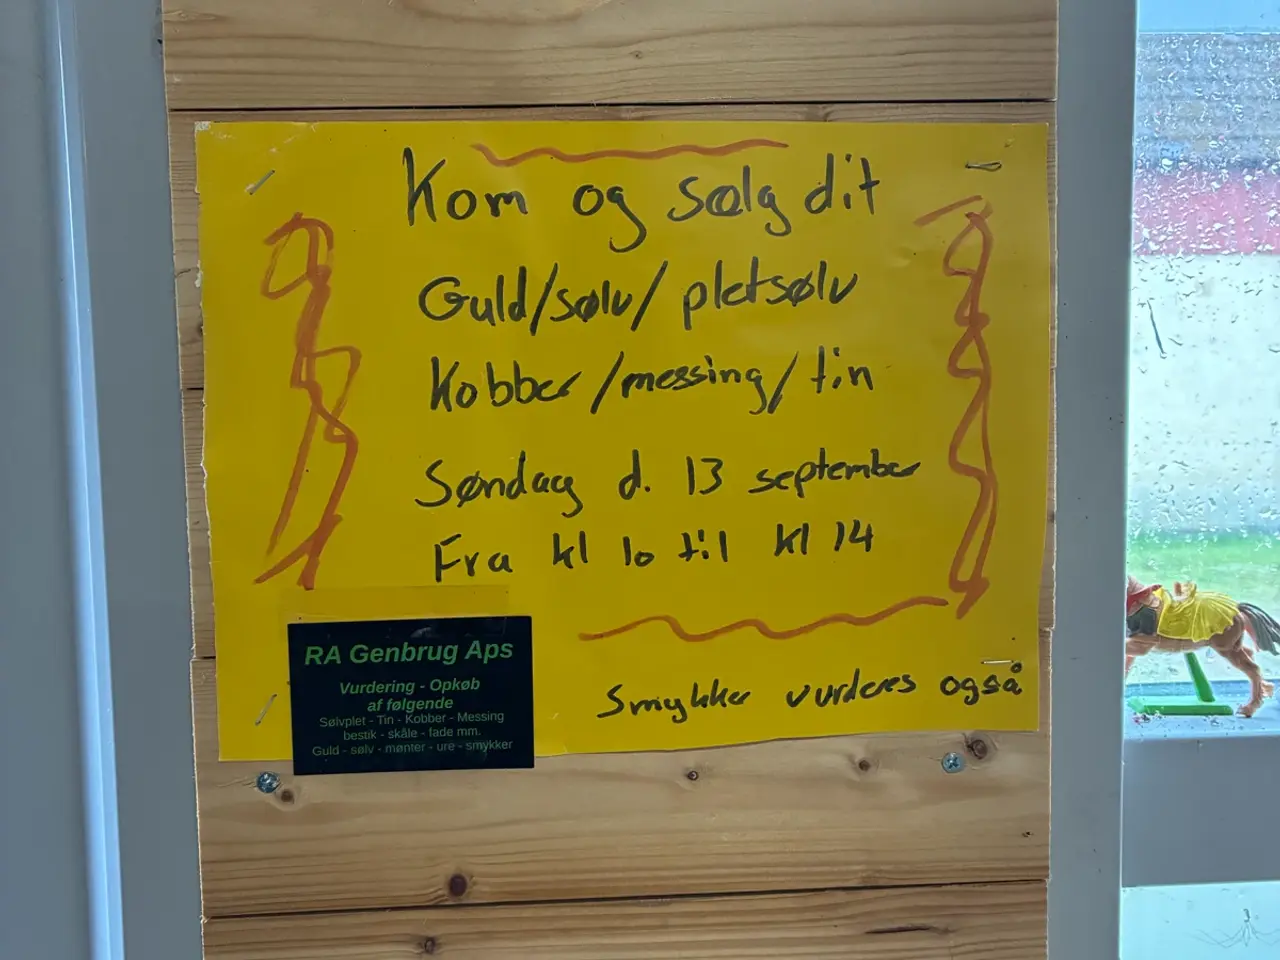 Kom og sælg dit
Guld/sølv/pletsølv
Kobber/messing/tin
Søndag d. 13 september
Fra kl 10 til kl 14
Smykker vurderes også
RA Genbrug Aps
Vurdering - Opkøb
af følgende
Sølvplet - Tin - Kobber - Messing
bestik - skåle - fade mm.
Guld - sølv - mønter - ure - smykker